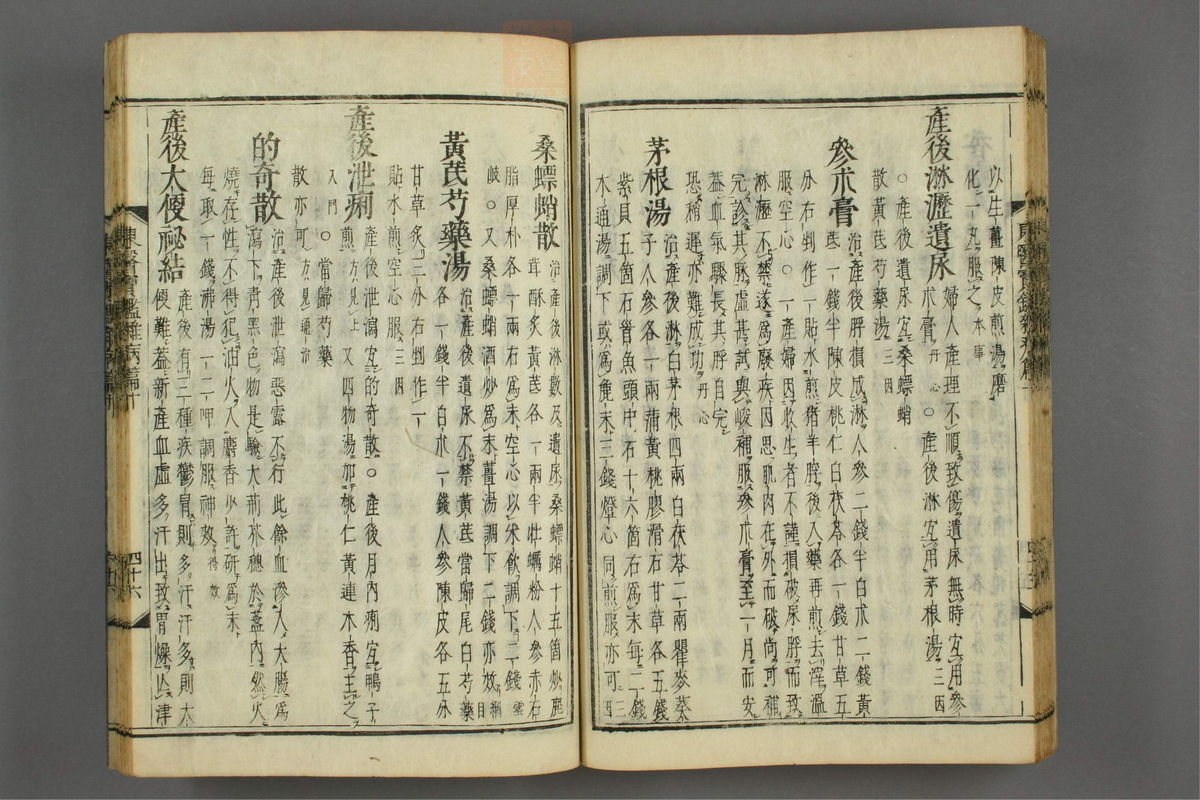 以生薑陳皮煎湯磨
化一丸服之 本事
產後淋瀝遺尿 婦人產理不順致傷遺尿無時宜用參
朮膏 丹心 ○產後淋宜用茅根湯 三因
○產後遺尿宜桑螵蛸
散黃芪芍藥湯 三因
參朮膏 治產後脬損成淋人參二錢半白朮二錢黃
芪一錢半陳皮桃仁白茯苓各一錢甘草五
分右剉作一貼水煎猪羊脬後入藥再煎去滓溫
服空心○一產婦因收生者不謹損破尿脬而致
淋瀝不禁遂爲廢疾因思肌肉在外而破尚可補
完診其脉虛甚試與峻補服參朮膏至一月而安
蓋血氣驟長其脬自完
恐稍遲亦難成功 丹心
茅根湯 治產後淋白茅根四兩白茯苓二兩瞿麥葵
子人參各一兩蒲黃桃膠滑石甘草各五錢
紫貝五箇石首魚頭中石十六箇右爲末每二錢
木通湯調下或爲麁末三錢燈心同煎服亦可 三因
桑螵蛸散 治產後淋數及遺尿桑螵蛸十五箇炒鹿
茸酥炙黃芪各一兩半牡蠣粉人參赤石
脂厚朴各一兩右爲末空心以米飮調下二錢 雲
岐○又桑螵蛸酒炒爲末薑湯調下二錢亦效 綱目
黃芪芍藥湯 治產後遺尿不禁黃芪當歸尾白芍藥
各一錢半白朮一錢人參陳皮各五分
甘草炙三分右剉作一
貼水煎空心服 三因
產後泄痢 產後泄瀉宜的奇散○產後月內痢宜鴨子
煎 方見上 又四物湯加桃仁黃連木香主之
入門 ○當歸芍藥
散亦可 方見通治
的奇散 治產後泄瀉惡露不行此餘血滲入大腸爲
瀉下靑黑色物是驗大荊芥穗於蓋內然火
燒存性不得犯油火入麝香少許硏爲末
每取一錢沸湯一二呷調服神效 得效
產後大便祕結 產後有三種疾鬱冒則多汗汗多則大
便難蓋新產血虛多汗出致胃燥亾津
四十六